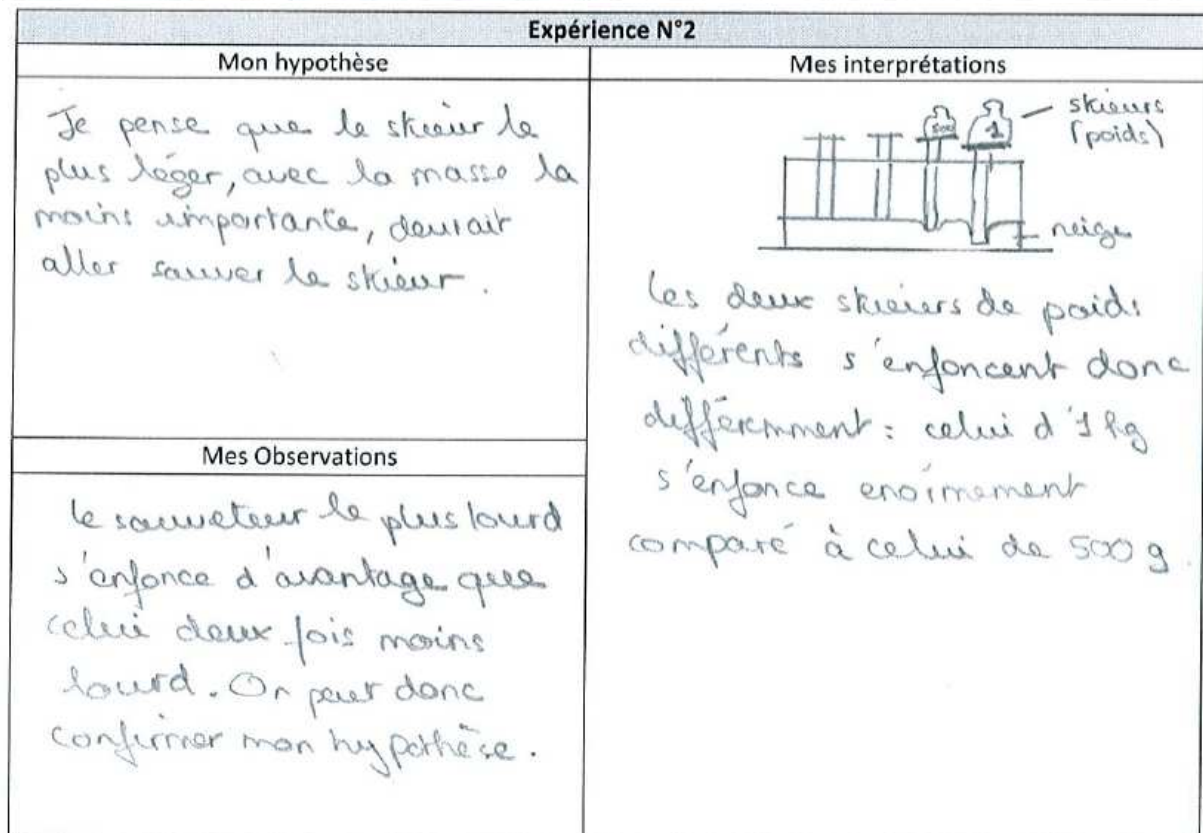 Expérience N°2
Mon hypothèse
Je pense que le skieur le
plus léger, avec la masse la
moins importante, devrait
aller sauver le skieur.
Mes Observations
le sauveteur le plus lourd
s'enfonce d'avantage que
celui deux fois moins
lourd. On peut donc
confirmer mon hypothèse.
Mes interprétations
skieurs
(poids)
500
1
neige
Les deux skieurs de poids
différents s'enfoncent donc
différemment : celui d'1 kg
s'enfonce enormement
comparé à celui de 500 g.